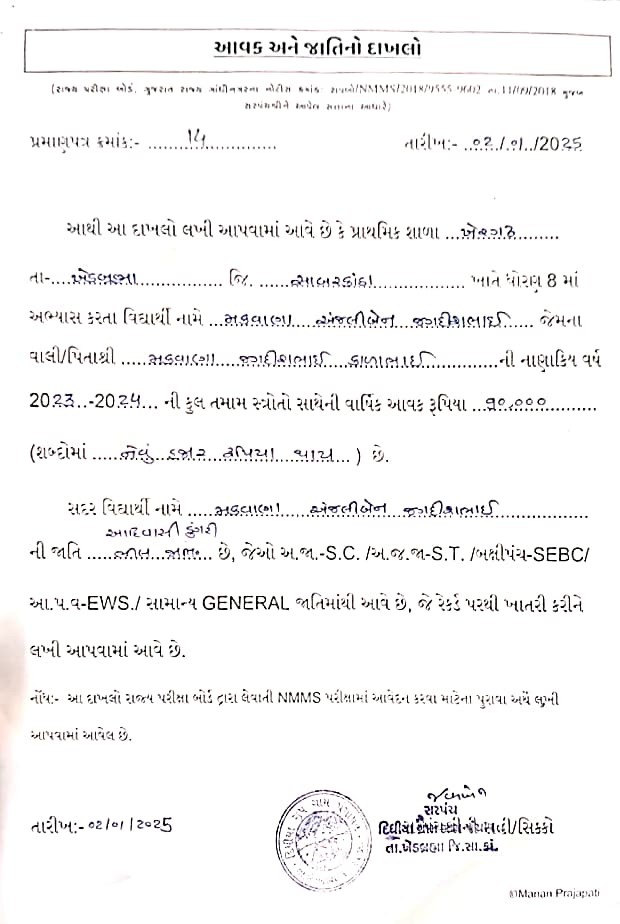 આવક અને જાતિનો દાખલો
(રાજ્ય પરીક્ષા બોર્ડ, ગુજરાત રાજ્ય ગાંધીનગરના નોટીસ ક્રમાંક: રાપબો/NMMS/2018/9555-9602 તા.11/09/2018 મુજબ
સરપંચશ્રીને આપેલ સત્તાના આધારે)
પ્રમાણપત્ર ક્રમાંક:- ......14............. તારીખ:- ..02./.01../2025
આથી આ દાખલો લખી આપવામાં આવે છે કે પ્રાથમિક શાળા ...ખેરગઢ.........
તા-....ખેડબ્રહ્મા................. જિ. ......સાબરકાંઠા.................. ખાતે ધોરણ 8 માં
અભ્યાસ કરતા વિદ્યાર્થી નામે ...મકવાણા....અંજલીબેન....જગદીશભાઈ...... જેમના
વાલી/પિતાશ્રી .....મકવાણા....જગદીશભાઈ....કાળાભાઈ..............ની નાણાકિય વર્ષ
2023..-2024... ની કુલ તમામ સ્ત્રોતો સાથેની વાર્ષિક આવક રૂપિયા ...૧૦,૦૦૦...........
(શબ્દોમાં ......નેવું...હજાર...રૂપિયા....પુરા... ) છે.
સદર વિદ્યાર્થી નામે .....મકવાણા.....અંજલીબેન...જગદીશભાઈ...............
આદિવાસી ડુંગરી
ની જાતિ ......... છે, જેઓ અ.જા.-S.C. /અ.જ.જા-S.T. /બક્ષીપંચ-SEBC/
આ.પ.વ-EWS./ સામાન્ય GENERAL જાતિમાંથી આવે છે, જે રેકર્ડ પરથી ખાતરી કરીને
લખી આપવામાં આવે છે.
નોંધ:- આ દાખલો રાજ્ય પરીક્ષા બોર્ડ દ્વારા લેવાતી NMMS પરીક્ષામાં આવેદન કરવા માટેના પુરાવા અર્થે લખી
આપવામાં આવેલ છે.
સરપંચ
તારીખ:- 02/01/2025 સહી/સિક્કો
તા.ખેડબ્રહ્મા જિ.સા.કાં.
©Manan Prajapati